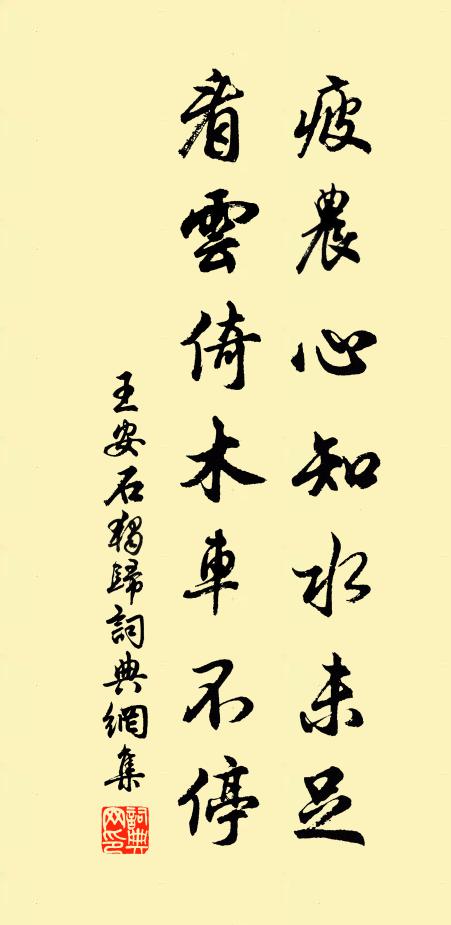 疲農心知水未足
看雲倚木車不停
王安石獨歸詞典網集
詞典
网印